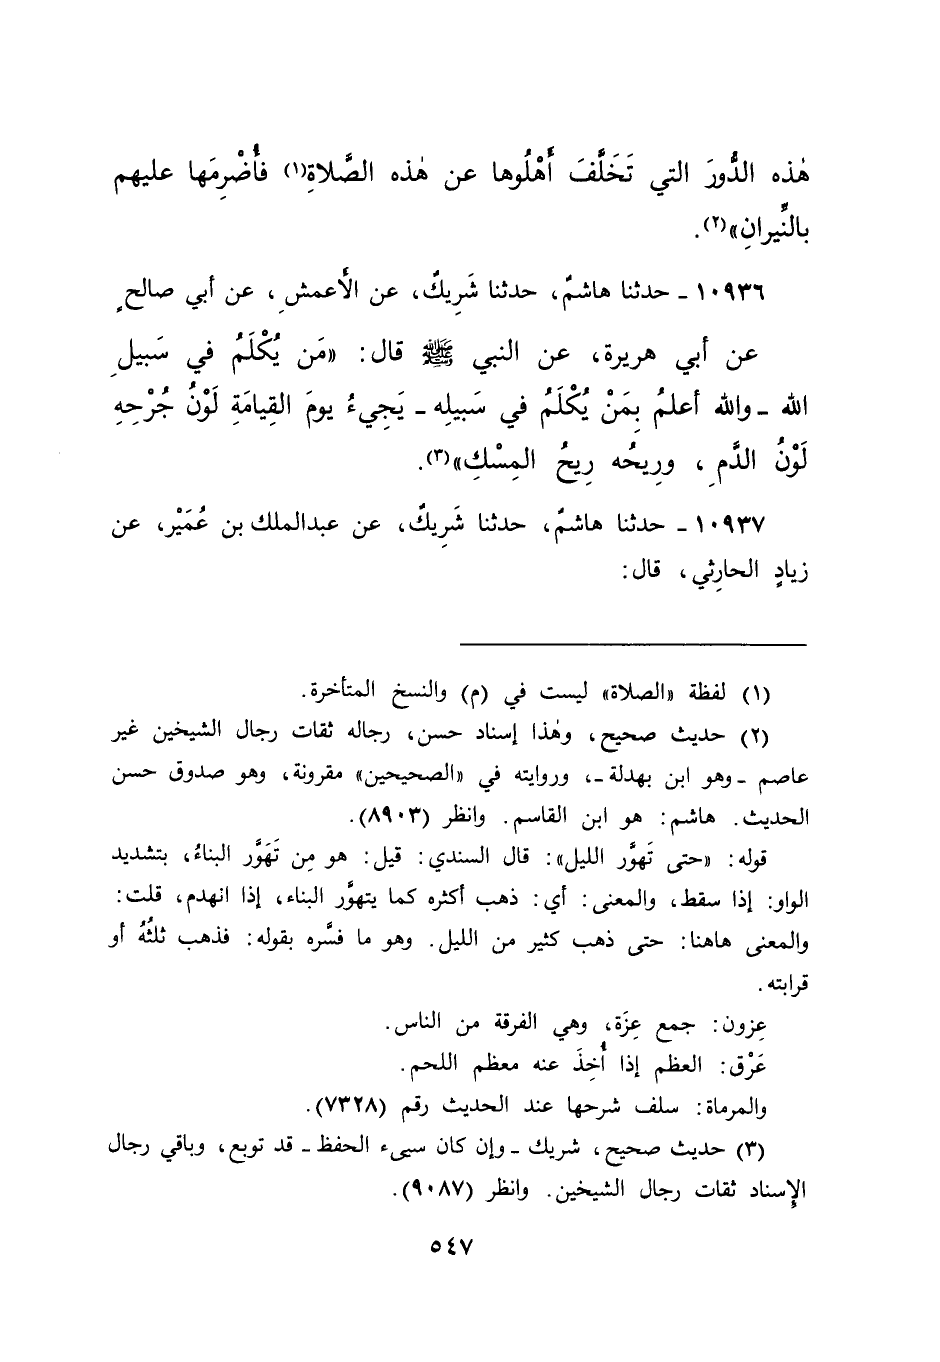 هٰذه الدُّورَ التي تَخَلَّفَ أَهْلُوها عن هٰذه الصَّلاةِ(١) فأُضْرِمَها عليهم
بالنِّيرانِ»(٢).
١٠٩٣٦ ـ حدثنا هاشمٌ، حدثنا شَرِيكٌ، عن الأَعمشِ، عن أبي صالحٍ
عن أبي هريرة، عن النبي ﷺ قال: «مَن يُكْلَمُ في سَبيلِ
الله ـ والله أعلمُ بِمَنْ يُكْلَمُ في سَبيلِه ـ يَجِيءُ يومَ القِيامَةِ لَوْنُ جُرْحِهِ
لَوْنُ الدَّمِ، ورِيحُه رِيحُ المِسْكِ»(٣).
١٠٩٣٧ ـ حدثنا هاشمٌ، حدثنا شَرِيكٌ، عن عبدالملك بن عُمَيْر، عن
زيادٍ الحارِثي، قال:
(١) لفظة «الصلاة» ليست في (م) والنسخ المتأخرة.
(٢) حديث صحيح، وهٰذا إسناد حسن، رجاله ثقات رجال الشيخين غير
عاصم ـ وهو ابن بهدلة ـ، وروايته في «الصحيحين» مقرونة، وهو صدوق حسن
الحديث. هاشم: هو ابن القاسم. وانظر (٨٩٠٣).
قوله: «حتى تَهوَّر الليل»: قال السندي: قيل: هو مِن تَهَوَّر البناءُ، بتشديد
الواو: إذا سقط، والمعنى: أي: ذهب أكثره كما يتهوَّر البناء، إذا انهدم، قلت:
والمعنى هاهنا: حتى ذهب كثير من الليل. وهو ما فسَّره بقوله: فذهب ثلثُهُ أو
قرابته.
عِزون: جمع عِزَة، وهي الفرقة من الناس.
عَرْق: العظم إذا أُخِذَ عنه معظم اللحم.
والمرماة: سلف شرحها عند الحديث رقم (٧٣٢٨).
(٣) حديث صحيح، شريك ـ وإن كان سيىء الحفظ ـ قد توبع، وباقي رجال
الإسناد ثقات رجال الشيخين. وانظر (٩٠٨٧).
٥٤٧